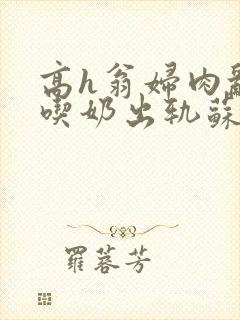 高h翁婦肉亂
喫奶出軌蘇
羅蓉芳